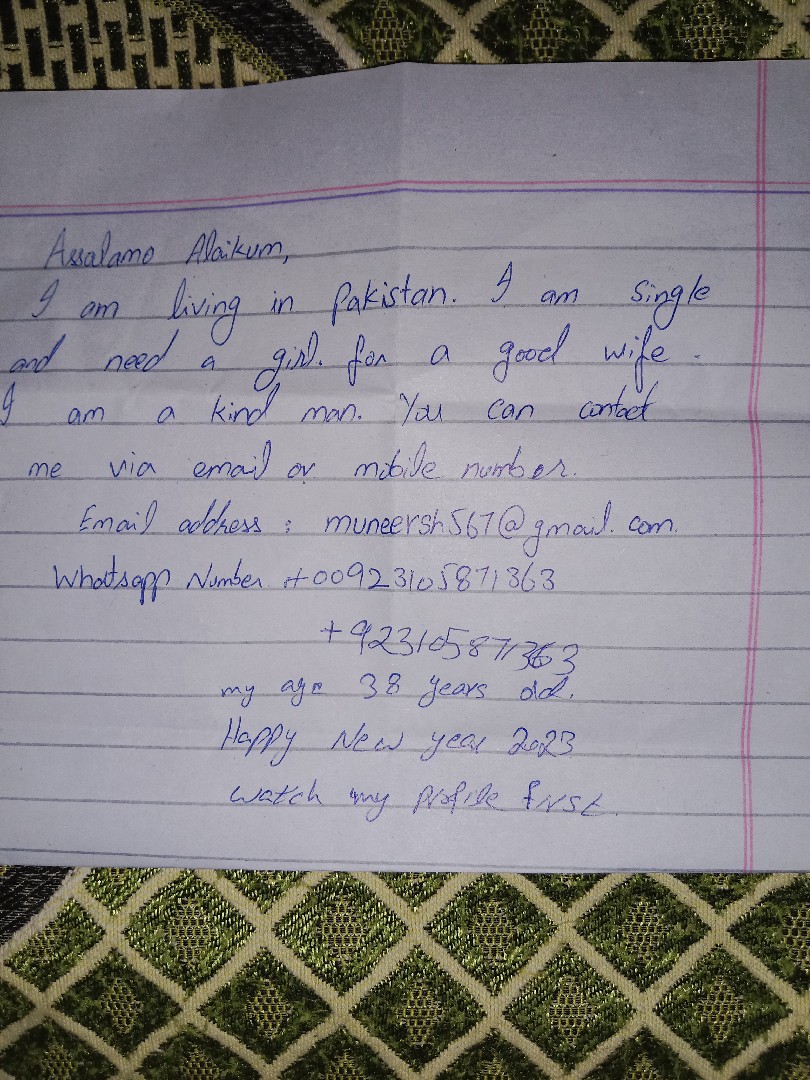 Assalamo Alaikum,
I am living in Pakistan. I am Single
and need a girl. for a good wife.
I am a kind man. You can contact
me via email or mobile number.
Email address : muneersh567@gmail.com.
Whatsapp Number :+00923105871363
+923105871363
my age 38 years old.
Happy New year 2023
watch my profile first.